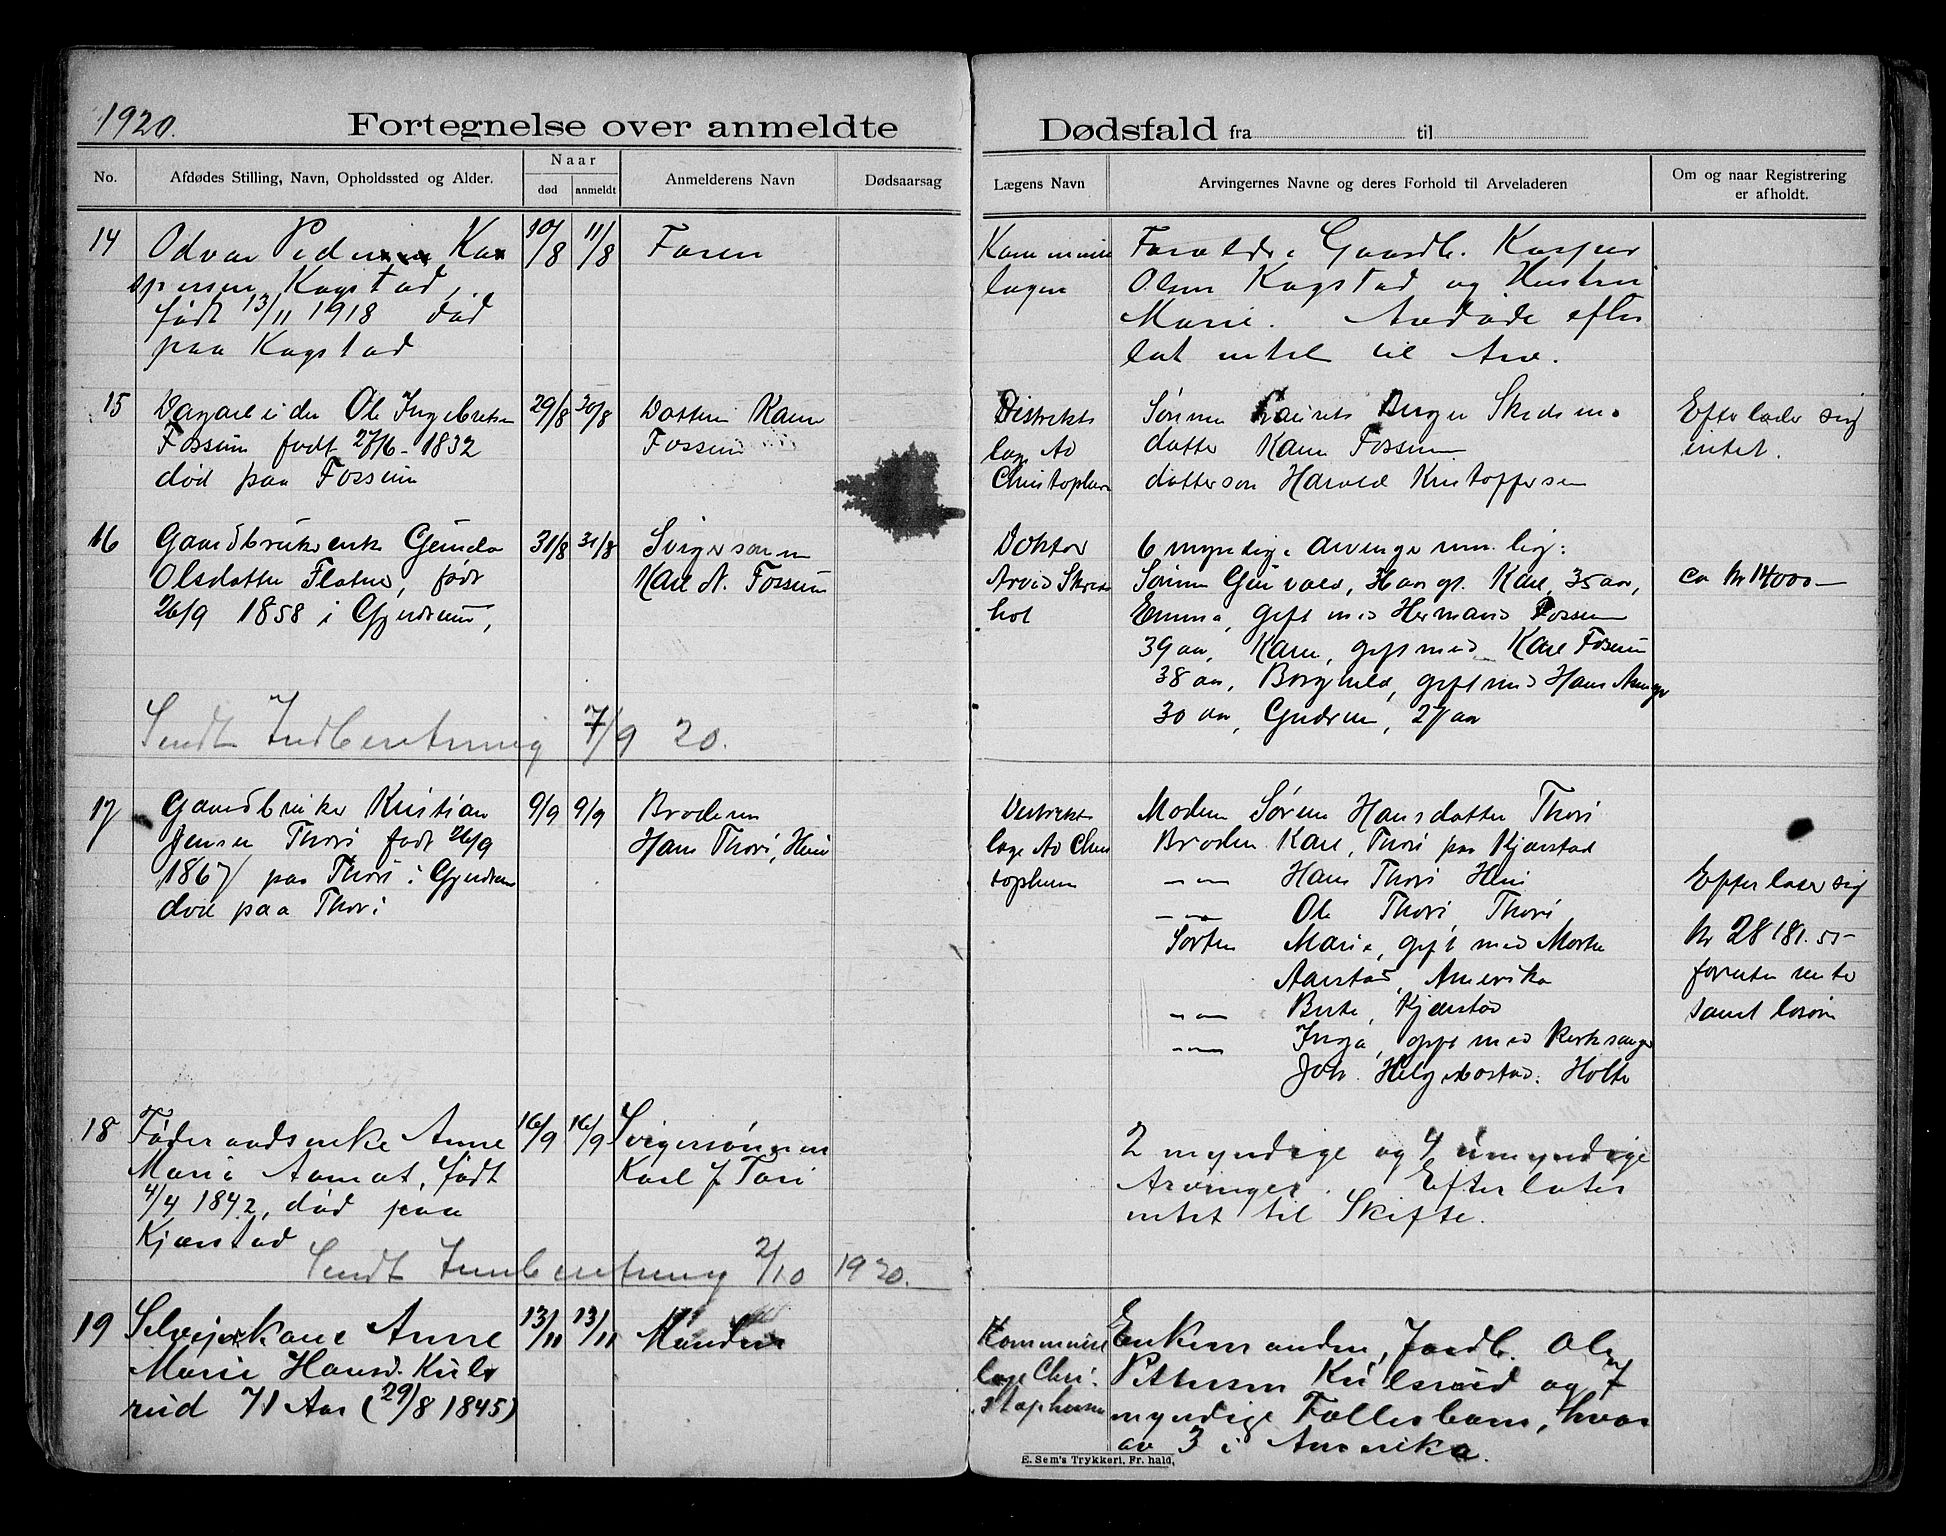 1920.
Fortegnelse over anmeldte Dødsfald fra til
No.
Afdødes Stilling, Navn, Opholdssted og Alder.
Naar
død
anmeldt
Anmelderens Navn
Dødsaarsag
Lægens Navn
Arvingernes Navne og deres Forhold til Arveladeren
Om og naar Registrering
er afholdt.
14
Odvar Kas
persen Kogstad,
født 13/11 1918 død
paa Kogstad
10/8
11/8
Faren
Kommune
lægen
Forældre Gaardb. Kasper
Olsen Kogstad og Hustru
Marie. Avdøde efter
lot intet til Arv.
15
Ole Ingebretsen
Fossum født 27/6-1832
død paa Fossum
29/8
30/8
Datteren Karen
Fossum
Distrikts
læge Ao
Christophersen
Sønnen Berger Skedsmo
datter Karen Fossum
dattersøn Harald Kristoffersen
Efterlader sig
intet.
16
Gaardbrukerenke Gunda
Olsdatter Flatner, født
26/9 1858 i Gjerdrum,
31/8
31/8
Svigersønnen
Karl A. Fossum
Doktor
Arvid Skreds
hol
6 myndige arvinger nemlig:
Sønnen Gunvald, Karl, 35 aar,
Emma, gift med Hermand Fossum
39 aar, Karen, gift med Karl Fossum
38 aar, Borghild, gift med Hans
30 aar, Gudrun, 27 aar
ca Kr 14000-
Sendt Indberetning 7/9 20.
17
Gaardbruker Kristian
Jensen Thori født 26/9
1867 paa Thori i Gjerdrum
død paa Thori
9/9
9/9
Broderen
Hans Thori, Heni
Distrikts
læge Ao Chris
tophersen
Moderen Søren Hansdatter Thori
Broderen Karl, Thori paa Kjærstad
-"- Hans Thori Heni
-"- Ole Thori Thori
Søsteren Marie, gift med
Aarstad, Amerika
-"- Berte, Kjærstad
-"- Inga, gift med Kirksanger
Joh. Helgebostad. Holte
Efterlater sig
Kr 28181.55-
foruten rente
samt løsøre
18
Føderaadsenke Anne
Marie Aamot, født
4/4 1842, død paa
Kjærstad
16/9
16/9
Svigersønnen
Karl J Tori
2 myndige og 4 umyndige
Arvinger. Efterlater
intet til Skifte.
Sendt Innberetning 2/10 1920.
19
Selveierkone Anne
Marie Hansd. Kuls
rud 71 Aar (29/8 1845)
13/11
13/11
Manden
Kommune
læge Chri-
stophersen
Enkemanden, Jordb. Ole
Pettersen Kulsrud og 7
myndige Fællesbarn, hvor
av 3 i Amerika.
E. Sem's Trykkeri, Fr. hald.